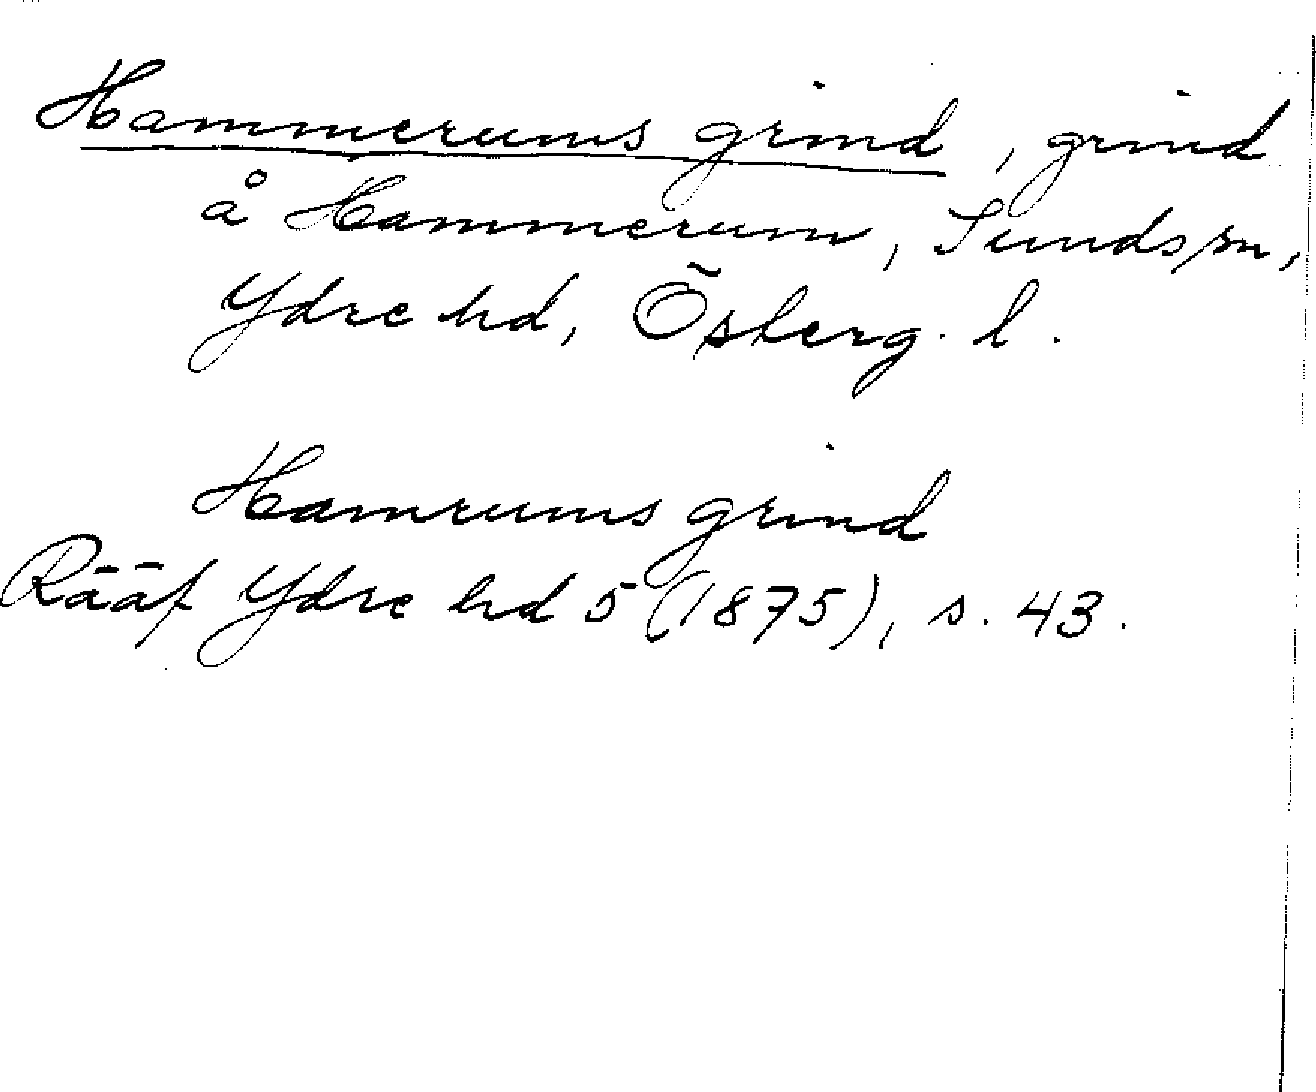 Hammerums grind, grind
å Hammerum, Sunds sn,
Ydre hd, Österg. l.
Hamrums grind
Rääf Ydre hd 5 (1875), s. 43.